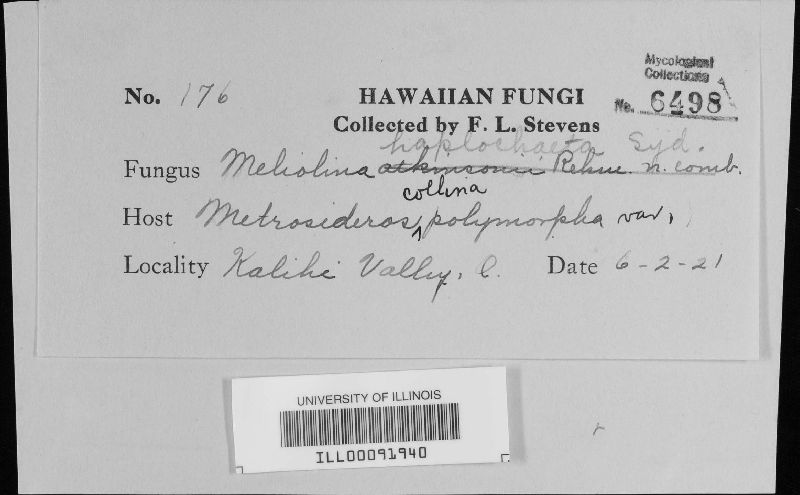 Mycological
Collections
No. 6498
No. 176
HAWAIIAN FUNGI
Collected by F. L. Stevens
haplochaeta Syd.
Fungus Meliolina atkinsonii Rehm. n. comb.
collina
Host Metrosideros polymorpha var.
Locality Kalihi Valley, O. Date 6-2-21
UNIVERSITY OF ILLINOIS
ILL00091940
r